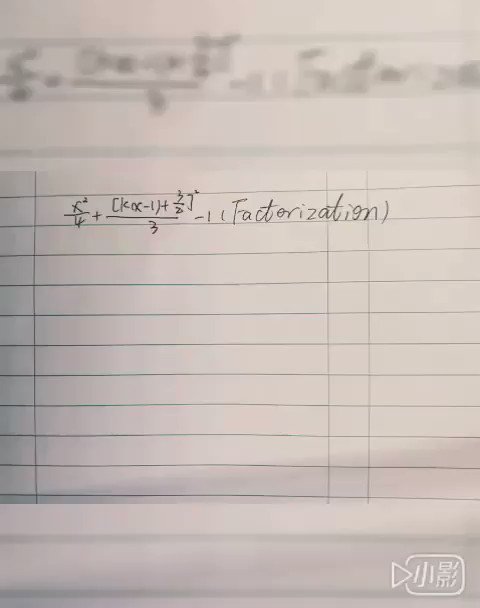 x²/4 + [k(x-1)+3/2]²/3 -1 (Factorization)
小影